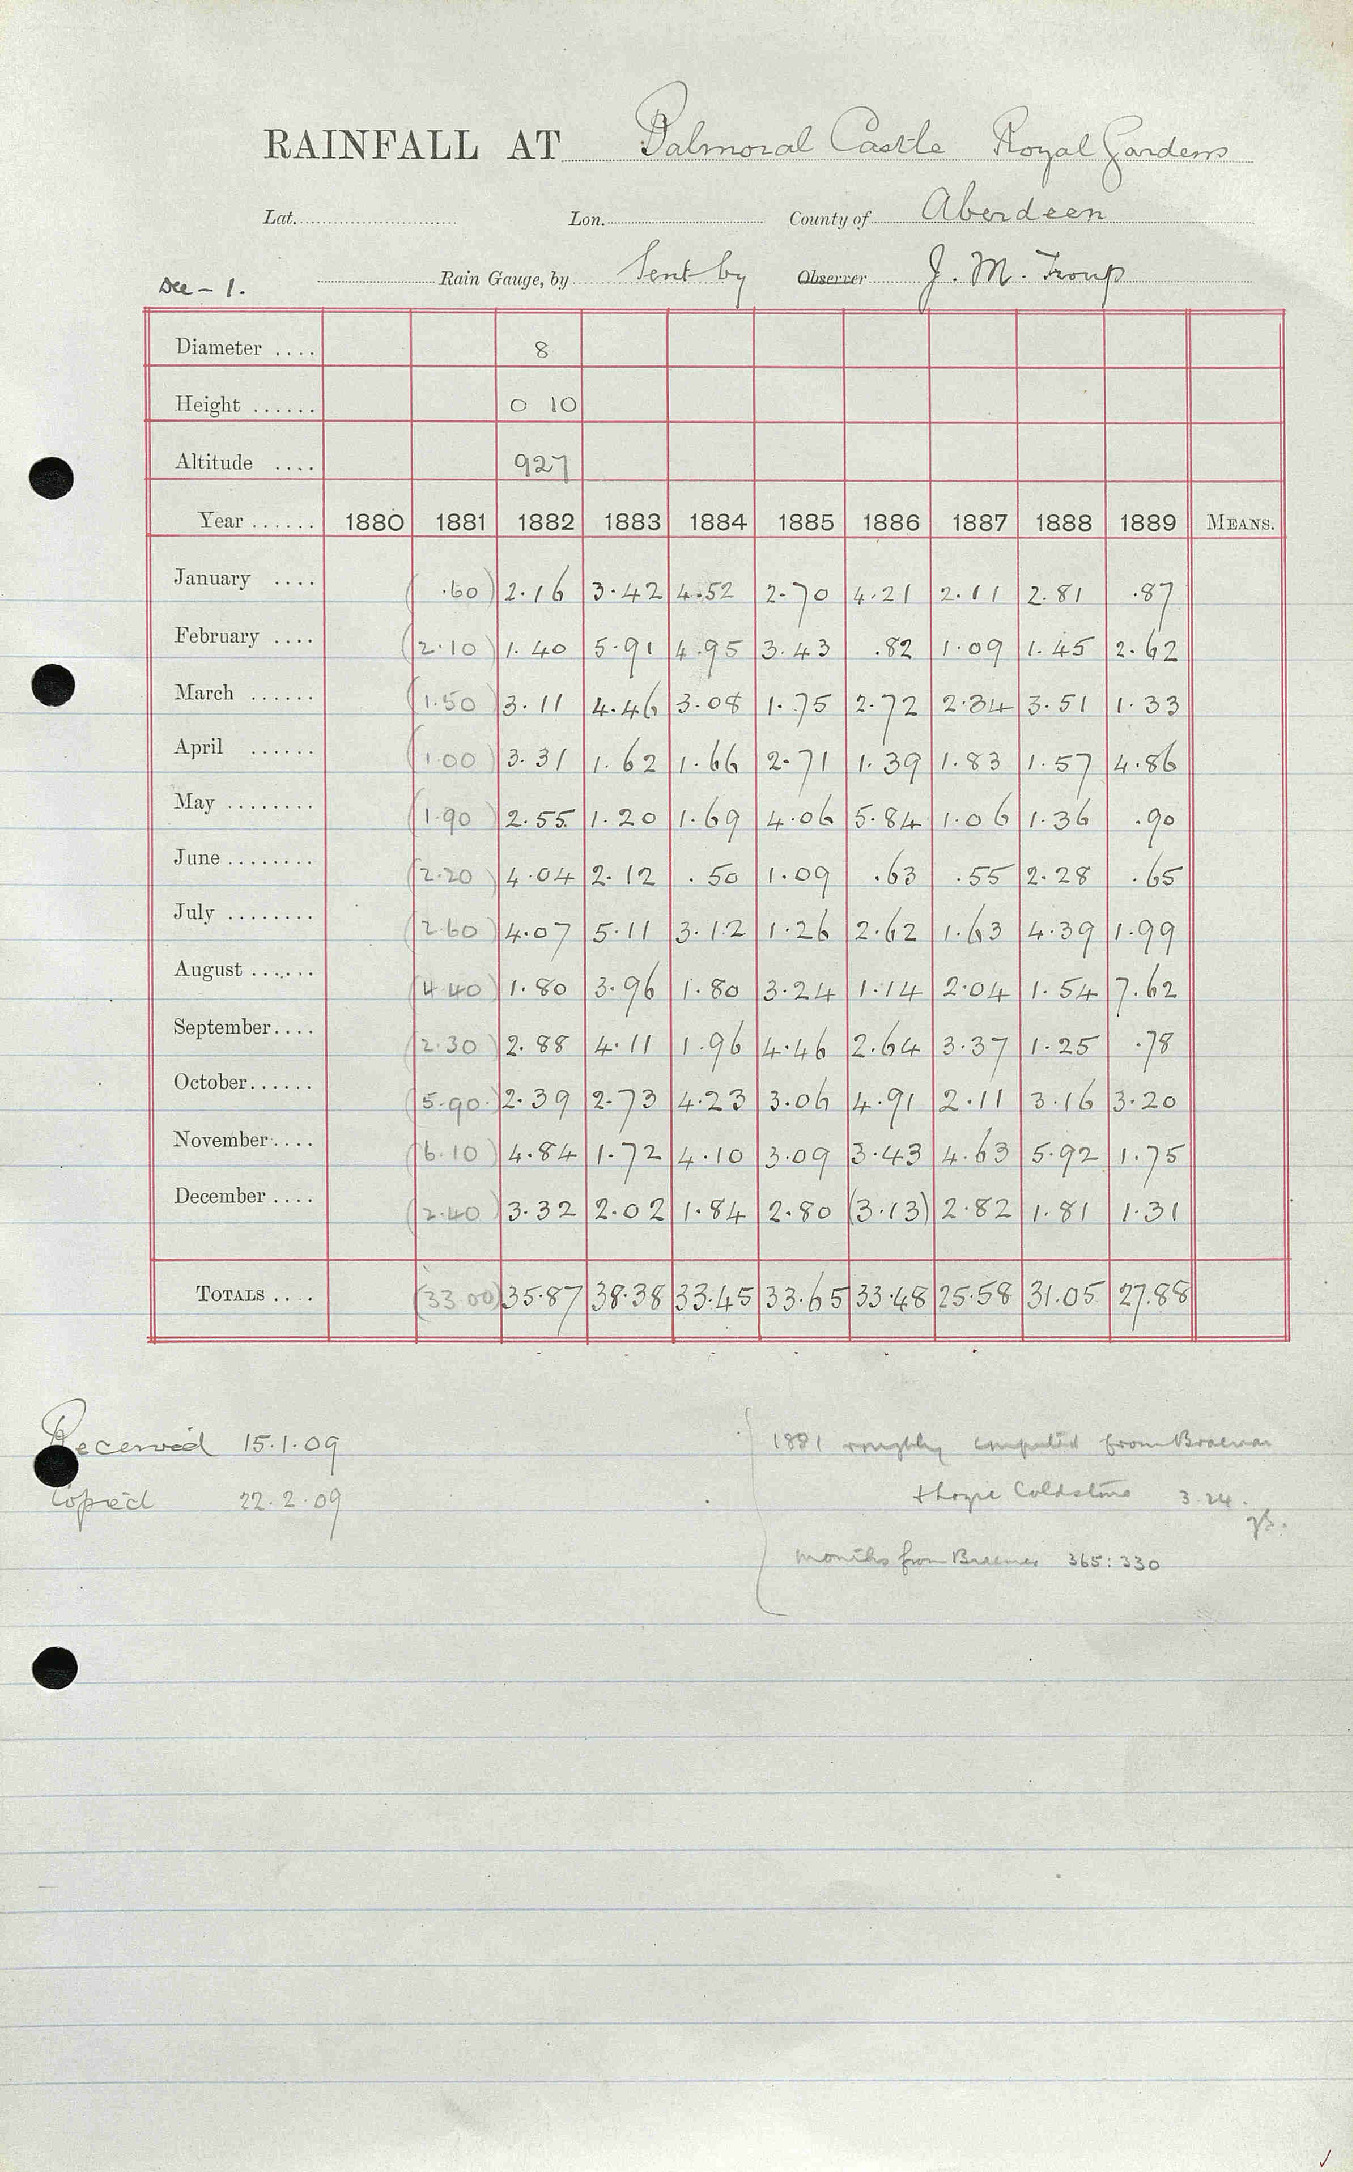 RAINFALL AT Balmoral Castle Royal Gardens
Lat. Lon. County of Aberdeen
Dee - 1. Rain Gauge, by Sent by Observer J. M. Troup
Diameter .... 8
Height ...... 0 10
Altitude .... 927
Year ...... 1880 1881 1882 1883 1884 1885 1886 1887 1888 1889 MEANS.
January .... (.60) 2.16 3.42 4.52 2.70 4.21 2.11 2.81 .87
February .... (2.10) 1.40 5.91 4.95 3.43 .82 1.09 1.45 2.62
March ...... (1.50) 3.11 4.46 3.08 1.75 2.72 2.34 3.51 1.33
April ...... (1.00) 3.31 1.62 1.66 2.71 1.39 1.83 1.57 4.86
May ........ (1.90) 2.55 1.20 1.69 4.06 5.84 1.06 1.36 .90
June ........ (2.20) 4.04 2.12 .50 1.09 .63 .55 2.28 .65
July ........ (2.60) 4.07 5.11 3.12 1.26 2.62 1.63 4.39 1.99
August ...... (4.40) 1.80 3.96 1.80 3.24 1.14 2.04 1.54 7.62
September.... (2.30) 2.88 4.11 1.96 4.46 2.64 3.37 1.25 .78
October...... (5.90) 2.39 2.73 4.23 3.06 4.91 2.11 3.16 3.20
November.... (6.10) 4.84 1.72 4.10 3.09 3.43 4.63 5.92 1.75
December .... (2.40) 3.32 2.02 1.84 2.80 (3.13) 2.82 1.81 1.31
TOTALS .... (33.00) 35.87 38.38 33.45 33.65 33.48 25.58 31.05 27.88
Received 15.1.09
1881 roughly computed from Braemar
Copied 22.2.09
+ Logie Coldstone 3.24.
months from Braemar 365:330